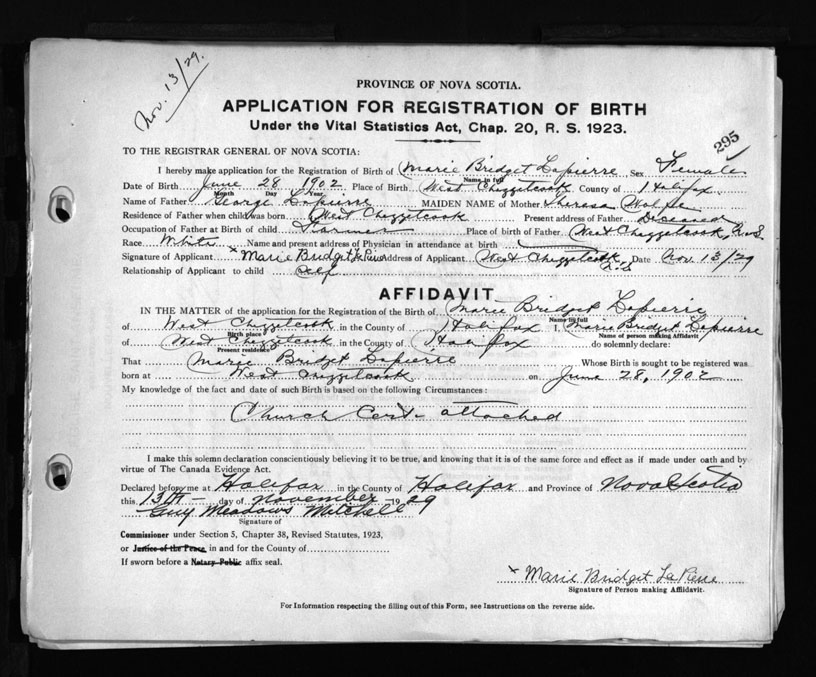 Nov. 13/29.
PROVINCE OF NOVA SCOTIA.
APPLICATION FOR REGISTRATION OF BIRTH
Under the Vital Statistics Act, Chap. 20, R. S. 1923.
295
TO THE REGISTRAR GENERAL OF NOVA SCOTIA:
I hereby make application for the Registration of Birth of Marie Bridget Lapierre Sex Female
Name in full
Date of Birth June 28 1902 Place of Birth West Chezzetcook County of Halifax
Month Day Year
Name of Father George Lapierre MAIDEN NAME of Mother Theresa Wolfe
Residence of Father when child was born West Chezzetcook Present address of Father Deceased
Occupation of Father at Birth of child Farmer Place of birth of Father West Chezzetcook, N.S.
Race White Name and present address of Physician in attendance at birth
Signature of Applicant x Marie Bridget La Pierre Address of Applicant West Chezzetcook N.S. Date Nov. 13/29
Relationship of Applicant to child self
AFFIDAVIT
IN THE MATTER of the application for the Registration of the Birth of Marie Bridget Lapierre
Name in full
of West Chezzetcook in the County of Halifax I, Marie Bridget Lapierre
Birth place Name of person making Affidavit
of West Chezzetcook in the County of Halifax do solemnly declare:
Present residence
That Marie Bridget Lapierre Whose Birth is sought to be registered was
born at West Chezzetcook on June 28, 1902
My knowledge of the fact and date of such Birth is based on the following Circumstances:
Church Cert. attached
I make this solemn declaration conscientiously believing it to be true, and knowing that it is of the same force and effect as if made under oath and by
virtue of The Canada Evidence Act.
Declared before me at Halifax in the County of Halifax and Province of Nova Scotia
this 13th day of November 1929
Guy Meadows Mitchell
Signature of
Commissioner under Section 5, Chapter 38, Revised Statutes, 1923,
or Justice of the Peace in and for the County of
If sworn before a Notary Public affix seal.
x Marie Bridget La Pierre
Signature of Person making Affidavit.
For Information respecting the filling out of this Form, see Instructions on the reverse side.